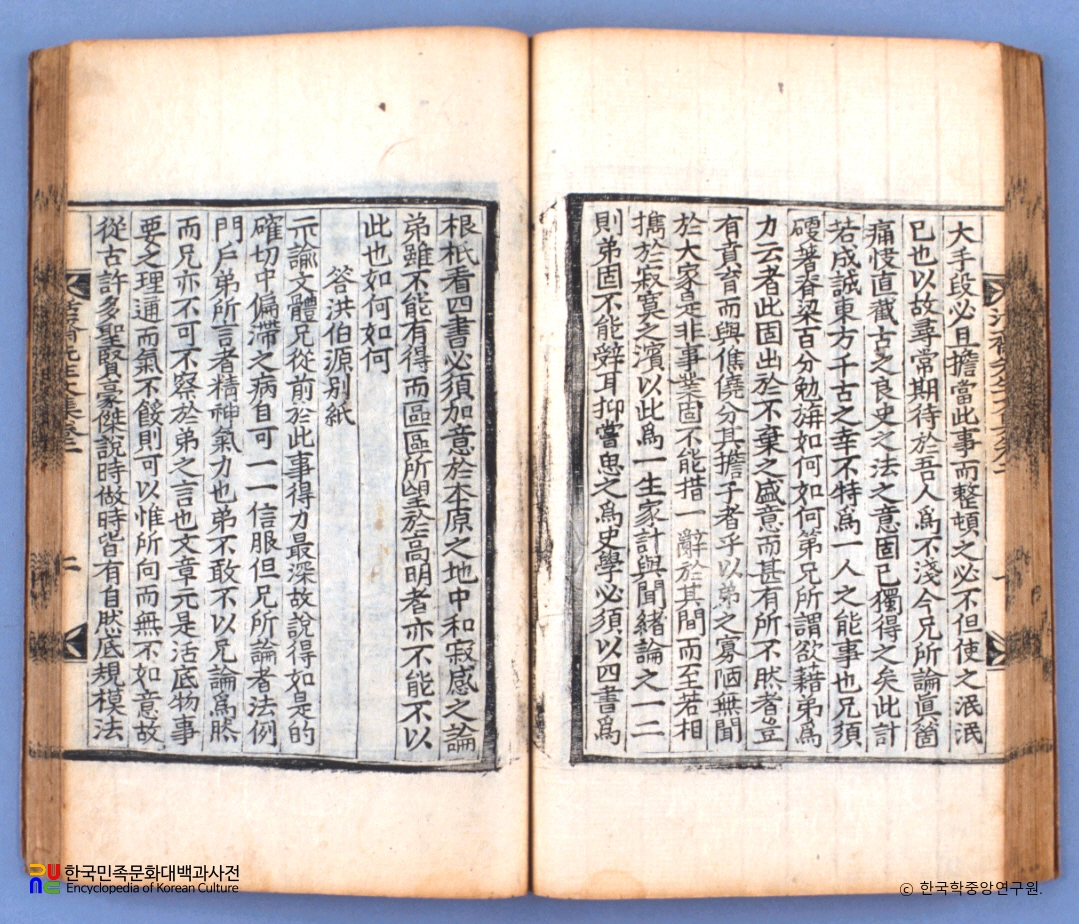 大手段必且擔當此事而整頓之必不但使之泯泯
已也以故尋常期待於吾人爲不淺今兄所論眞箇
痛快直截古之良史之法之意固已獨得之矣此計
若成誠東方千古之幸不特爲一人之能事也兄須
硬著脊梁百分勉旃如何如何第兄所謂欲藉弟爲
力云者此固出於不棄之盛意而甚有所不然者豈
有賁育而與僬僥分其擔子者乎以弟之寡陋無聞
於大家是非事業固不能措一辭於其間而至若相
携於寂寞之濱以此爲一生家計與聞緖論之一二
則弟固不能辭耳抑嘗思之爲史學必須以四書爲
根柢看四書必須加意於本原之地中和寂感之論
弟雖不能有得而區區所望於高明者亦不能不以
此也如何如何
答洪伯源別紙
示諭文體兄從前於此事得力最深故說得如是的
確切中偏滯之病自可一一信服但兄所論者法例
門戶弟所言者精神氣力也弟不敢不以兄論爲然
而兄亦不可不察於弟之言也文章元是活底物事
要之理通而氣不餒則可以惟所向而無不如意故
從古許多聖賢豪傑說時做時皆有自然底規模法
二
한국민족문화대백과사전
Encyclopedia of Korean Culture
© 한국학중앙연구원.